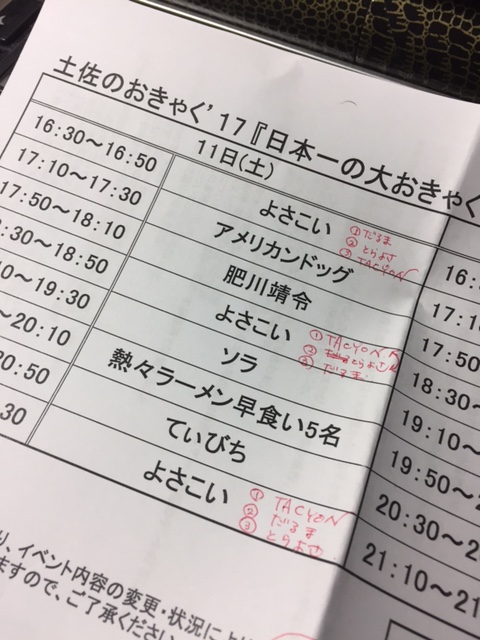 土佐のおきゃく'17『日本一の大おきゃく
11日(土)
16:30～16:50 よさこい
①だるま
②とらよさ
③TACYON
17:10～17:30 アメリカンドッグ
17:50～18:10 肥川靖令
:30～18:50 よさこい
①TACYON
②とらよさ
③だるま
0～19:30 ソラ
～20:10 熱々ラーメン早食い5名
20:50 てぃびち
30 よさこい
①TACYON
②だるま
③とらよさ
16:
17:10
17:50
18:30～
19:10～
19:50～2
20:30～2
21:10～21
り、イベント内容の変更・状況により
ますので、ご了承ください